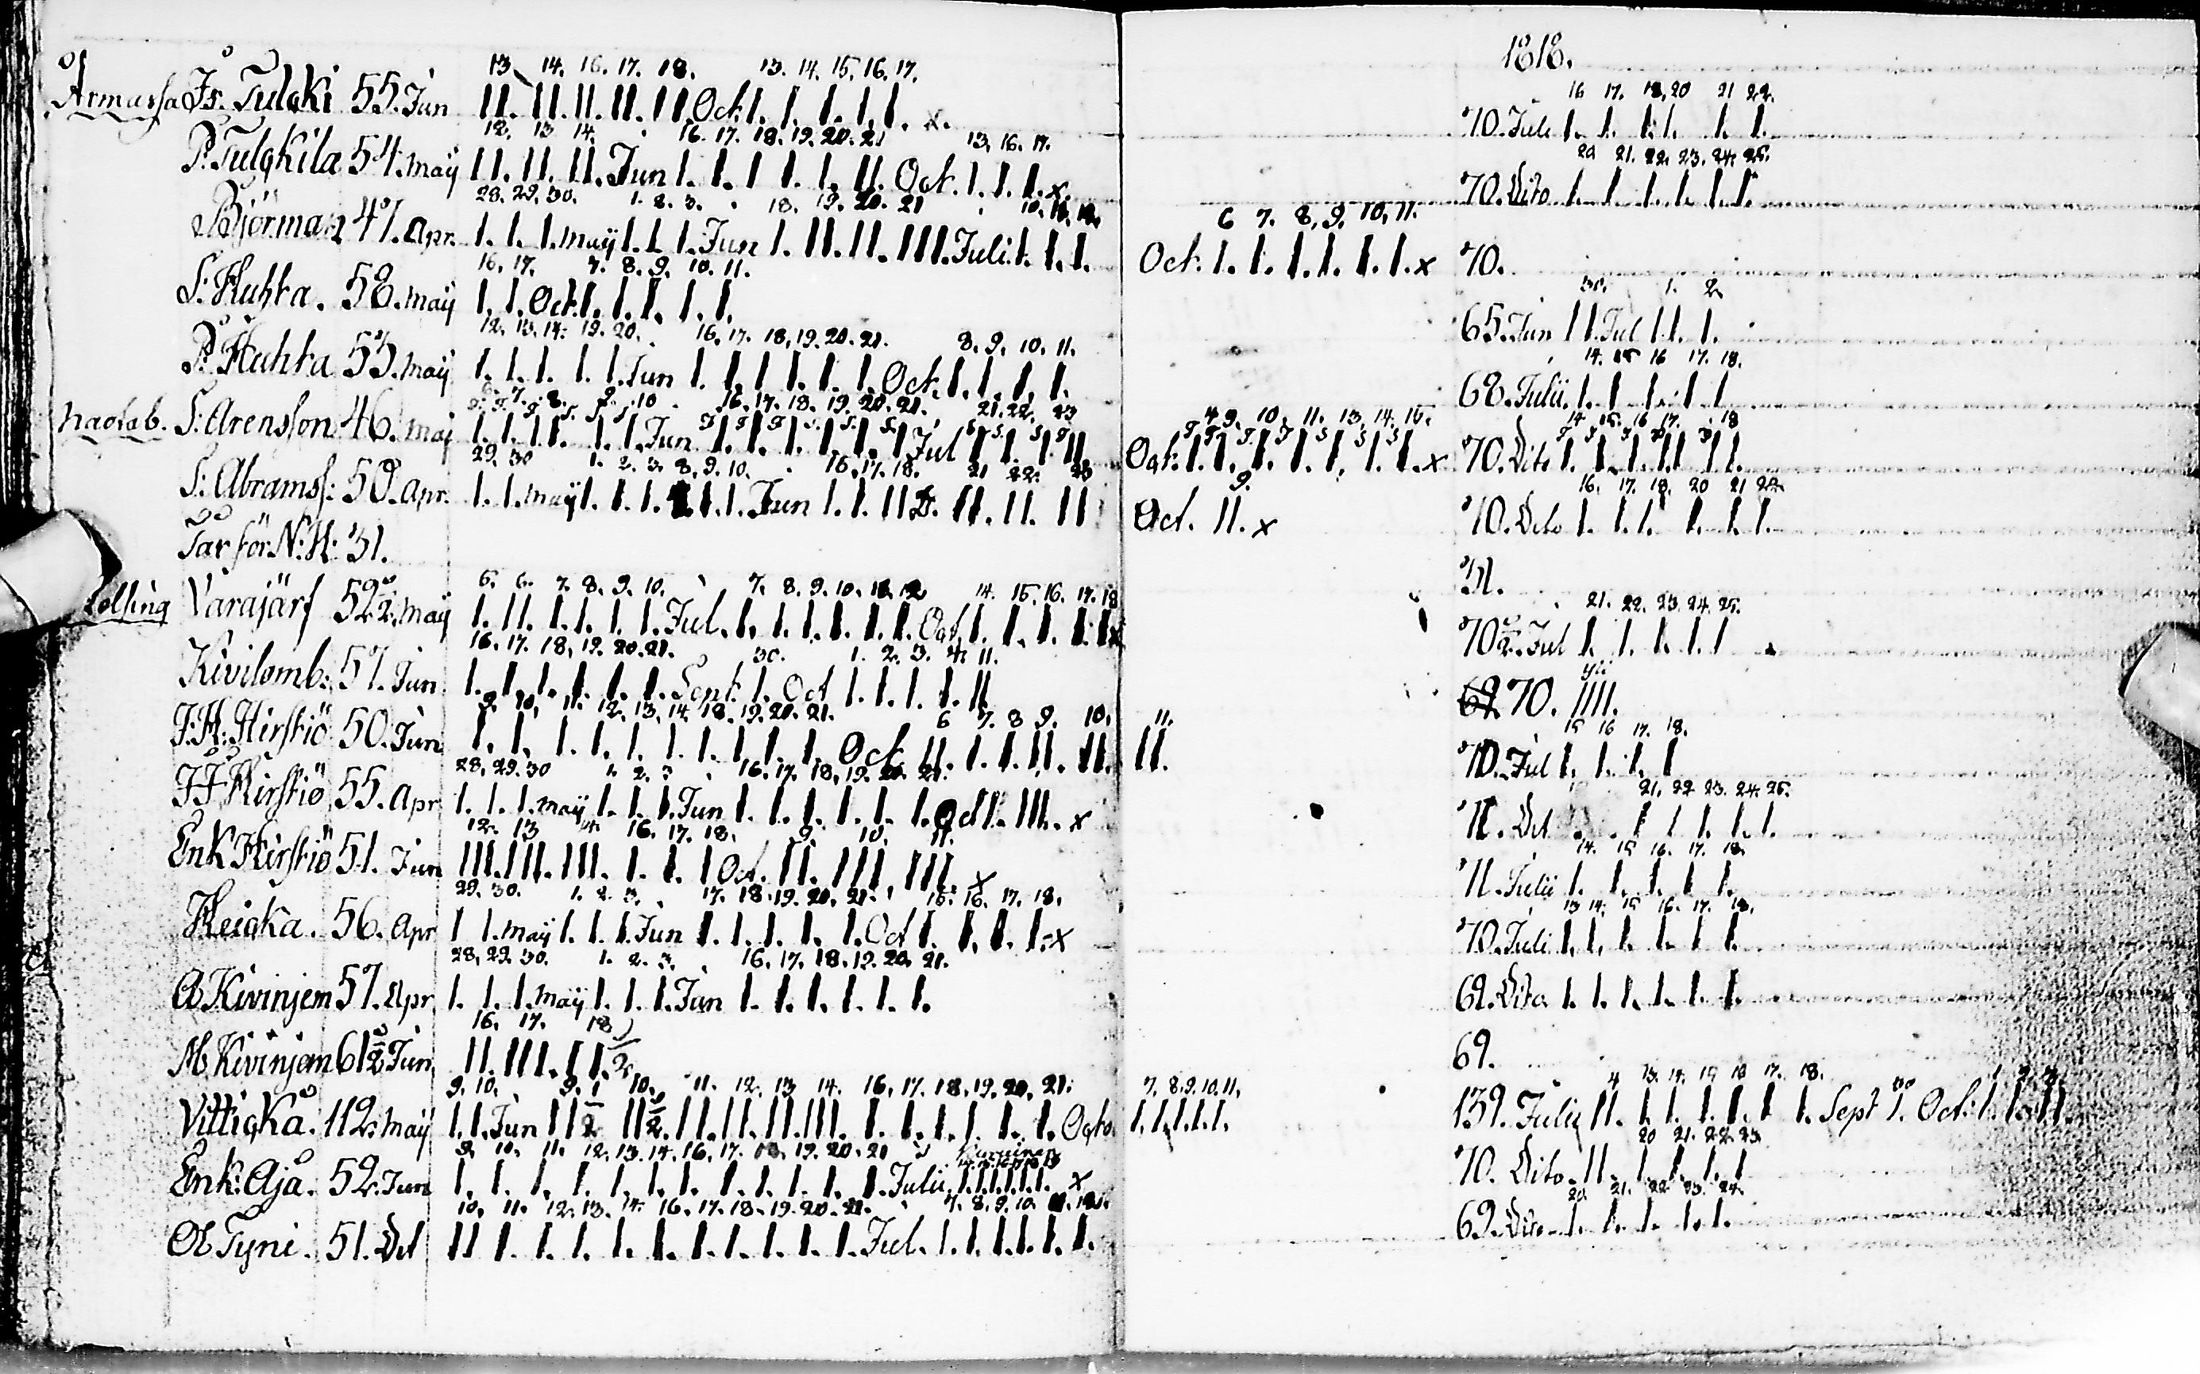 1818.
13. 14. 16. 17. 18. 13. 14. 15. 16. 17.
Armassa Is: Tulqki 55. Jun II. II. II. II. II. Oct. I. I. I. I. I. x.
16 17. 18. 20 21 22.
70. Juli I. I. I. I. I. I.
12. 13 14. 16. 17. 18. 19. 20. 21 13. 16. 17.
P: Tulqkila 54. may II. II. II. Jun I. I. I I. I. II. Oct. I. I. I. x
20 21. 22. 23. 24. 25.
70. Dito I. I. I. I. I. I.
28. 29. 30. 1. 2. 3. 18. 19. 20. 21
Björman 47. Apr. I. I. I. may I. I. I. Jun I. II. II. III. Juli I. I. I.
6 7. 8. 9. 10. 11.
Oct. I. I. I. I. I. I. x 70.
16. 17. 7. 8. 9. 10. 11.
S: Huhta. 58. may I. I. Oct I. I. I. I. I.
30. 1. 2.
65. Jun I I. Jul I. I. I.
12. 13. 14. 19. 20. 16. 17. 18. 19. 20. 21. 8. 9. 10. 11.
P: Huhta 53. may I. I. I. I. I. Jun I. I. I I. I. I. Oct. I. I. I. I.
14. 15 16 17. 18.
68. Julii. I. I I. I. I
6. 7. 8. 9. 10 16. 17. 18. 19. 20. 21. 21. 22. 23
S: Arensson 46. maj I. I. I I. I. I. Jun I. I. I. I. I. I Jul I I. I II.
9. 10. 11. 13. 14. 15.
Oct. I. I. I. I. I. I. I. x
14. 15. 16 17. 18
70. Dito I. I. I. I I I I.
29. 30 1. 2. 3. 8. 9. 10. 16. 17. 18. 21 22. 23
S: Abramss: 50. Apr. I. I. may I. I. I. I. I. I. Jun I. I. II D. II. II. II
9.
Oct. II. x
16. 17. 18. 20 21 22.
70. Dito I. I. I. I. I. I.
för N: H: 31.
31.
6. 6. 7. 8. 9. 10. 7. 8. 9. 10. 14. 15. 16. 17. 18
Varajärf 52½. may I. II. I. I. I. I. Jul. I. I. I. I. I. I. Oct. I. I. I. I.
21. 22. 23. 24. 25.
70½. Jul I. I. I. I. I
16. 17. 18. 19. 20. 21. 30. 1. 2. 3. 4. 11.
Kivilomb: 57. Jun I. I. I. I. I. I. Sept: I. Oct I. I. I. I. II
70. IIII.
9. 10. 11. 12. 13. 14. 18. 19. 20. 21. 6 7. 8 9. 10.
J: H: Hirstiö 50. Jun I. I. I. I. I. I. I. I. I. I. Oct. II. I. I. II. II.
11.
II.
15 16 17. 18.
70. Jul I. I. I. I
28. 29. 30 1. 2. 3 16. 17. 18. 19. 20. 21.
Hirstiö 55. Apr I. I. I. may I. I. I. Jun I. I. I. I. I. I. Oct I. III. x
21. 22 23. 24. 25.
71. Dit I I. I. I. I.
12. 13 14. 16. 17. 18. 9. 10. 11.
Enk Hirstiö 51. Jun III. III. III. I. I. I Oct. II. III. III. x
14. 15 16. 17. 18.
71. Julii I. I. I. I. I.
29. 30. 1. 2. 3. 17. 18. 19. 20. 21. 15. 16. 17. 18.
Heicka. 56. Apr I I. may I. I. I. Jun I. I. I. I. I. Oct I. I. I. I. x
13 14. 15 16. 17. 18.
70. Juli I. I. I. I. I. I.
28. 29. 30. 1. 2. 3. 16. 17. 18. 19. 20. 21.
A Kivinjem 57. Apr. I. I. I. may I. I. I. Jun I. I. I. I. I. I.
Dito I. I. I. I. I. I.
16. 17. 18
M: Kivinjem 61½ Jun II. III. I I. ½
69.
9. 10. 9. 10. 11. 12. 13 14. 16. 17. 18. 19. 20. 21.
Vittiqkå. 112. may I. I. Jun II ½ II ½. II. II. II. III. I. I. I. I. I. I. Octo
7. 8. 9. 10. 11.
I. I. I. I. I.
139. Julii II. I. I. I. I. I. I. Sept I. Oct: I.
9. 10. 11. 12. 13. 14. 16. 17. 18. 19. 20. 21
Enk: Aja. 52. Jun I. I. I. I. I. I. I. I. I. I. I. I. Julii I. I. I. I. I. I. x
20 21. 22. 23.
70. Dito II. I. I. I. I
10. 11. 12. 13. 14. 16. 17. 18. 19. 20. 21. 7. 8. 9. 10.
Tyni. 51. Dit II I. I. I. I. I. I. I. I. I. I. Jul. I. I. I. I. I. I.
20. 21. 22 23. 24.
69. Dito I. I. I. I. I.